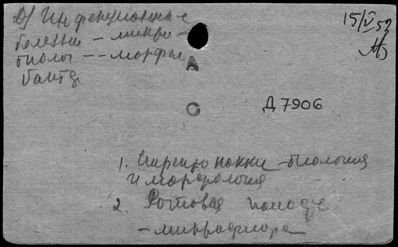 В) Инфекционные
болезни – микро-
биолог – – морфол
бакт
15/V 52
А
С
Д 7906
1. Стрептококки – биология
и морфология
2. Ротовая полость
– микрофлора